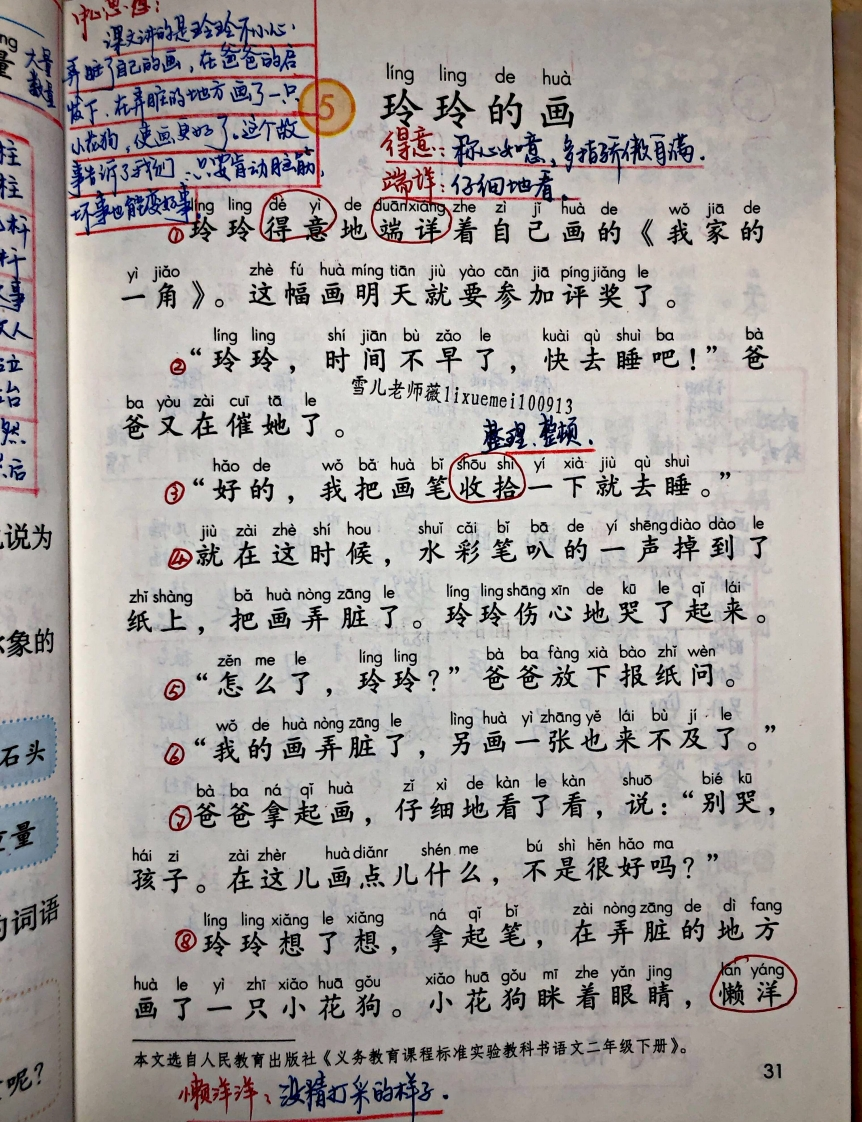 中心思想：
课文讲的是玲玲不小心
弄脏了自己的画，在爸爸的启
发下，在弄脏的地方画了一只
小花狗，使画更好了。这个故
事告诉了我们，只要肯动脑筋，
坏事也能变好事。
大量
数量
量
柱
柱
杆
杆
事
人
立
台
然
后
说为
象的
石头
量
词语
呢？
5
líng ling de huà
玲玲的画
得意：称心如意，多指骄傲自满．
端详：仔细地看．
líng ling dé yì de duānxiáng zhe zì jǐ huà de wǒ jiā de
①玲玲得意地端详着自己画的《我家的
yì jiǎo zhè fú huà míng tiān jiù yào cān jiā píng jiǎng le
一角》。这幅画明天就要参加评奖了。
líng ling shí jiān bù zǎo le kuài qù shuì ba bà
②“玲玲，时间不早了，快去睡吧！”爸
雪儿老师薇lixuemei100913
ba yòu zài cuī tā le
爸又在催她了。
整理、整顿．
hǎo de wǒ bǎ huà bǐ shōu shi yí xià jiù qù shuì
③“好的，我把画笔收拾一下就去睡。”
jiù zài zhè shí hou shuǐ cǎi bǐ bā de yì shēng diào dào le
④就在这时候，水彩笔叭的一声掉到了
zhǐ shàng bǎ huà nòng zāng le líng ling shāng xīn de kū le qǐ lái
纸上，把画弄脏了。玲玲伤心地哭了起来。
zěn me le líng ling bà ba fàng xià bào zhǐ wèn
⑤“怎么了，玲玲？”爸爸放下报纸问。
wǒ de huà nòng zāng le lìng huà yì zhāng yě lái bù jí le
⑥“我的画弄脏了，另画一张也来不及了。”
bà ba ná qǐ huà zǐ xì de kàn le kàn shuō bié kū
⑦爸爸拿起画，仔细地看了看，说：“别哭，
hái zi zài zhèr huà diǎnr shén me bú shì hěn hǎo ma
孩子。在这儿画点儿什么，不是很好吗？”
líng ling xiǎng le xiǎng ná qǐ bǐ zài nòng zāng de dì fang
⑧玲玲想了想，拿起笔，在弄脏的地方
huà le yì zhī xiǎo huā gǒu xiǎo huā gǒu mī zhe yǎn jing lǎn yáng
画了一只小花狗。小花狗眯着眼睛，懒洋
本文选自人民教育出版社《义务教育课程标准实验教科书语文二年级下册》。
31
懒洋洋：没精打采的样子．